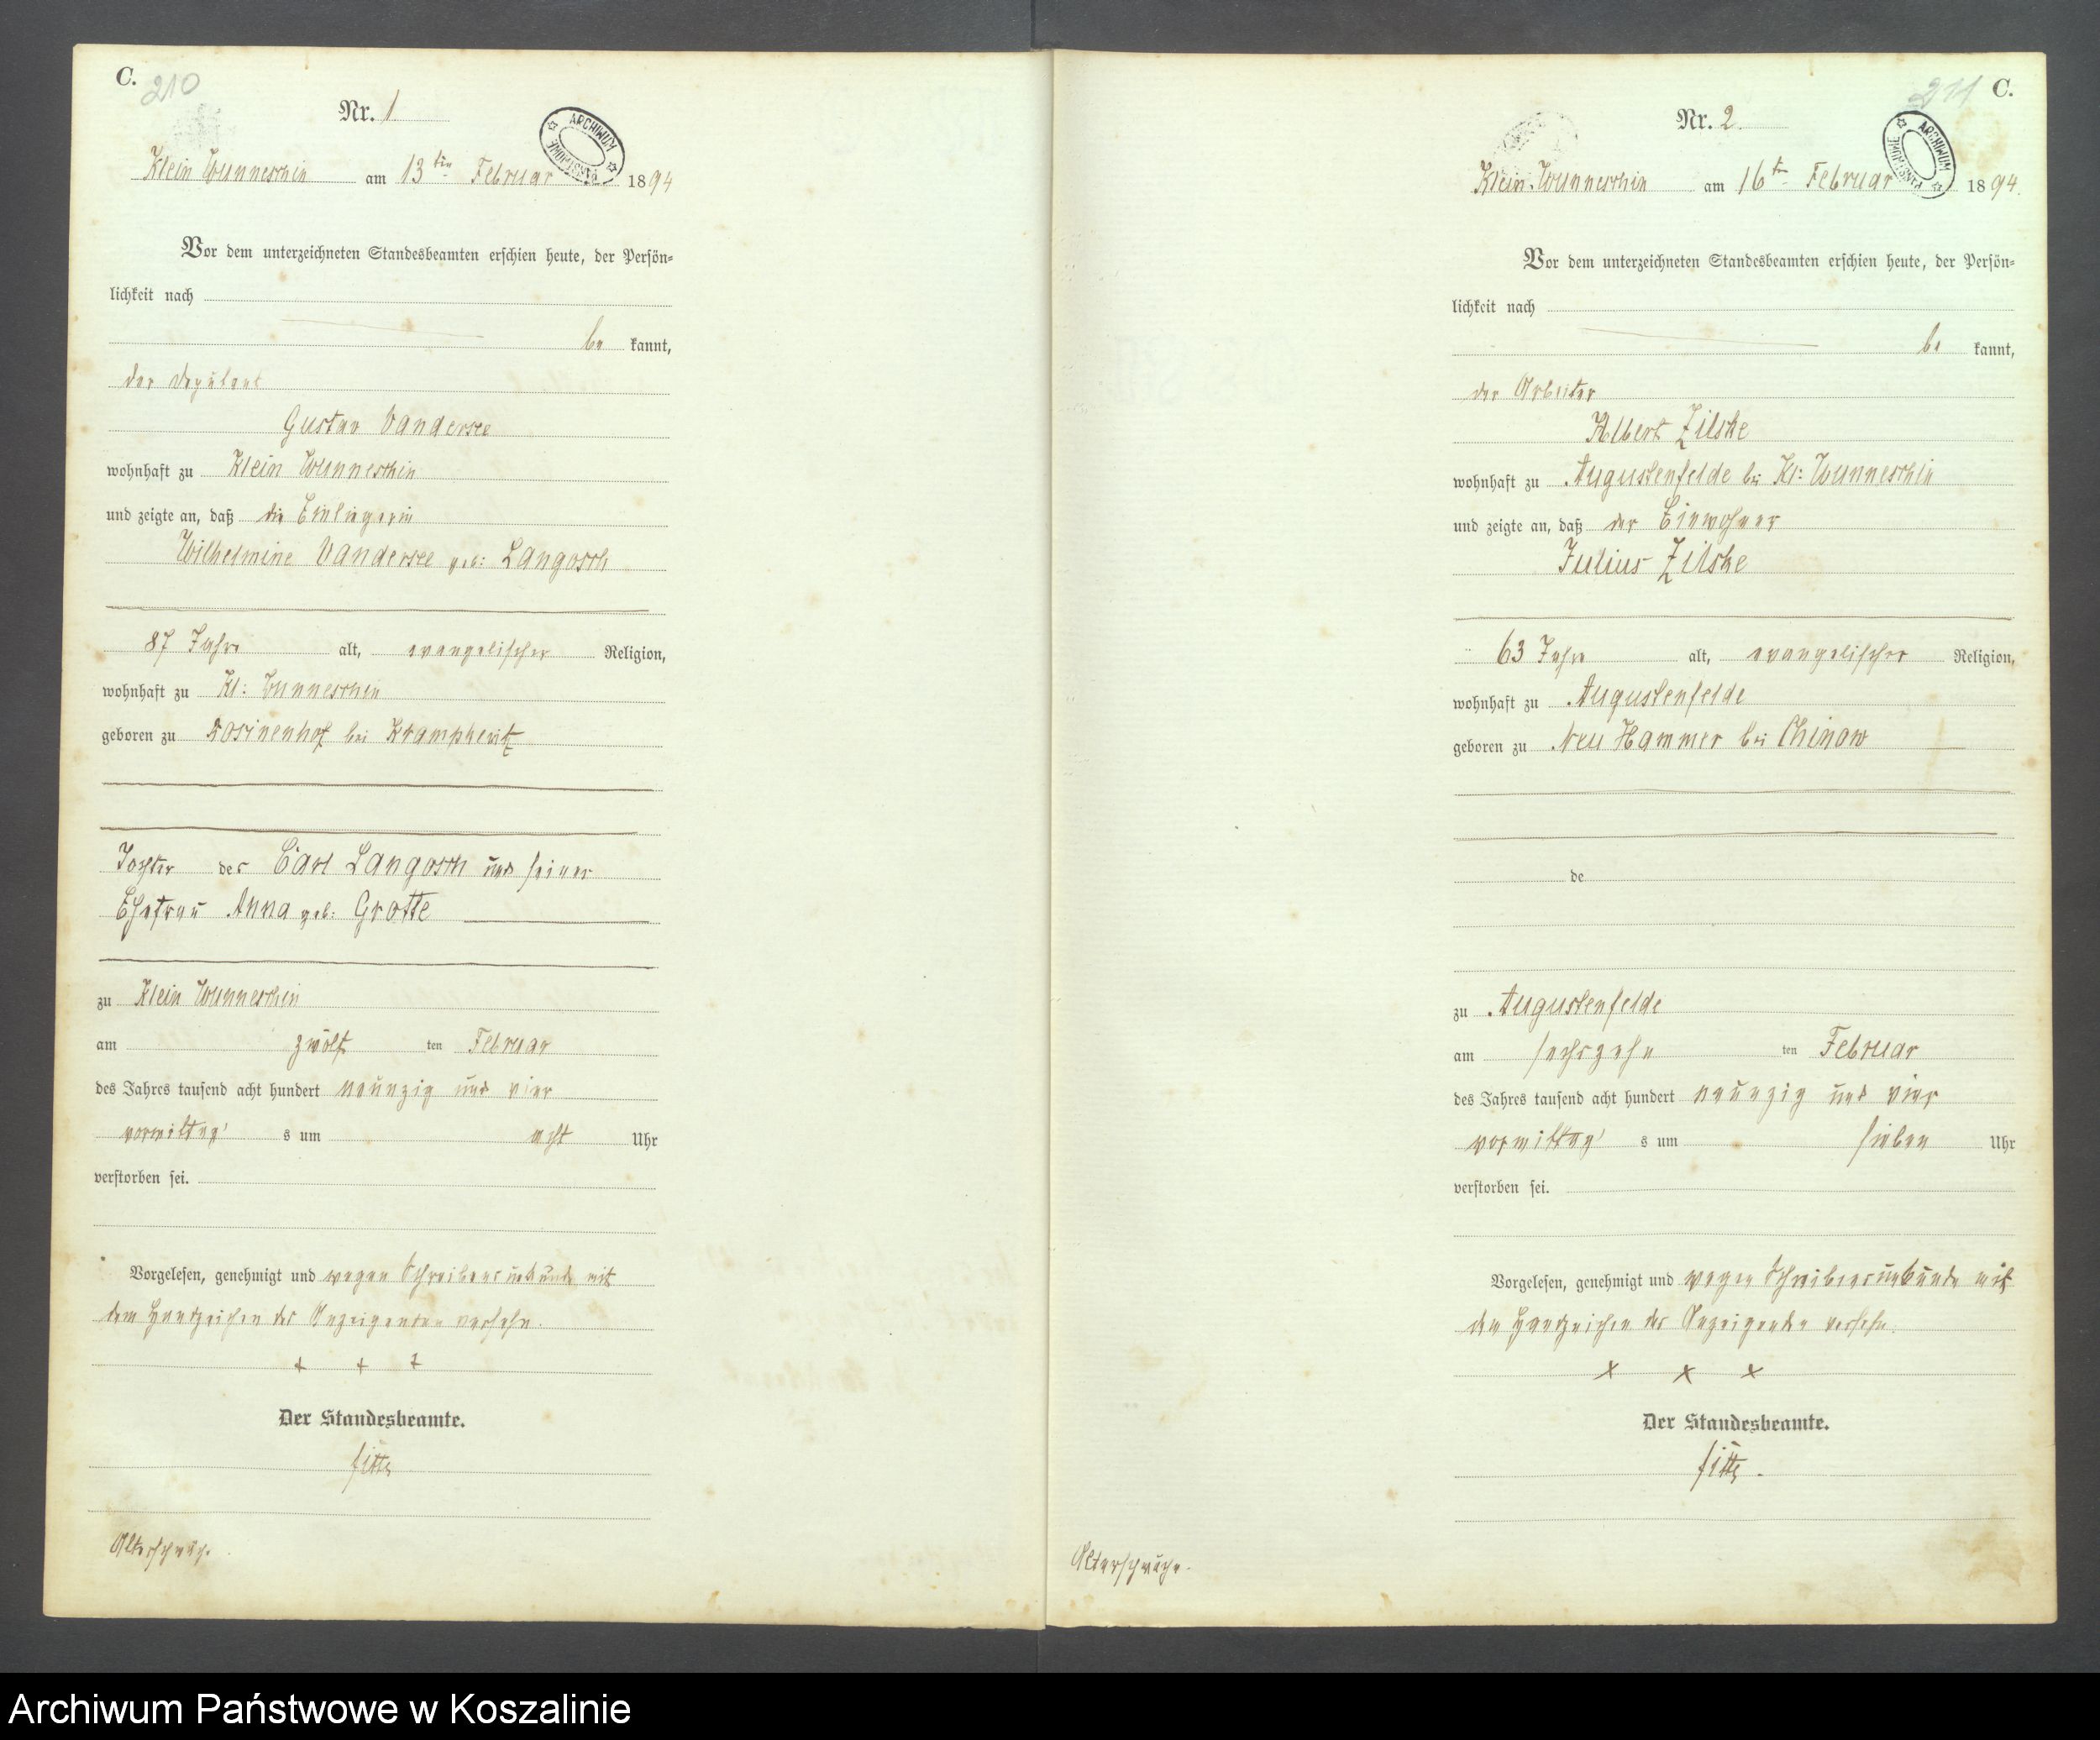 C.
210
Nr. 1
ARCHIWUM PAŃSTWOWE
Klein Wunneschin am 13ten Februar 1894
Vor dem unterzeichneten Standesbeamten erschien heute, der Persön=
lichkeit nach
be kannt,
der Deputant
Gustav Vandersee
wohnhaft zu Klein Wunneschin
und zeigte an, daß die Einliegerin
Wilhelmine Vandersee geb: Langosch
87 Jahre alt, evangelischer Religion,
wohnhaft zu Kl: Wunneschin
geboren zu Rosinenhof bei Krampkewitz
Tochter des Carl Langosch und seiner
Ehefrau Anna geb: Grotte
zu Klein Wunneschin
am zwölf ten Februar
des Jahres tausend acht hundert neunzig und vier
vormittag s um acht Uhr
verstorben sei.
Vorgelesen, genehmigt und wegen Schreibensunkunde mit
dem Handzeichen des Anzeigenden versehn.
+ + +
Der Standesbeamte.
Altersschwäche
C.
211
Nr. 2.
ARCHIWUM PAŃSTWOWE
Klein-Wunneschin am 16ten Februar 1894.
Vor dem unterzeichneten Standesbeamten erschien heute, der Persön=
lichkeit nach
be kannt,
der Arbeiter
Albert Zilske
wohnhaft zu Augustenfelde bei Kl: Wunneschin
und zeigte an, daß der Einwohner
Julius Zilske
63 Jahre alt, evangelischer Religion,
wohnhaft zu Augustenfelde
geboren zu Neu Hammer bei Chinow
de
zu Augustenfelde
am sechszehn ten Februar
des Jahres tausend acht hundert neunzig und vier
vormittag s um sieben Uhr
verstorben sei.
Vorgelesen, genehmigt und wegen Schreibensunkunde mit
dem Handzeichen des Anzeigenden versehn.
x x x
Der Standesbeamte.
Altersschwäche.
Archiwum Państwowe w Koszalinie